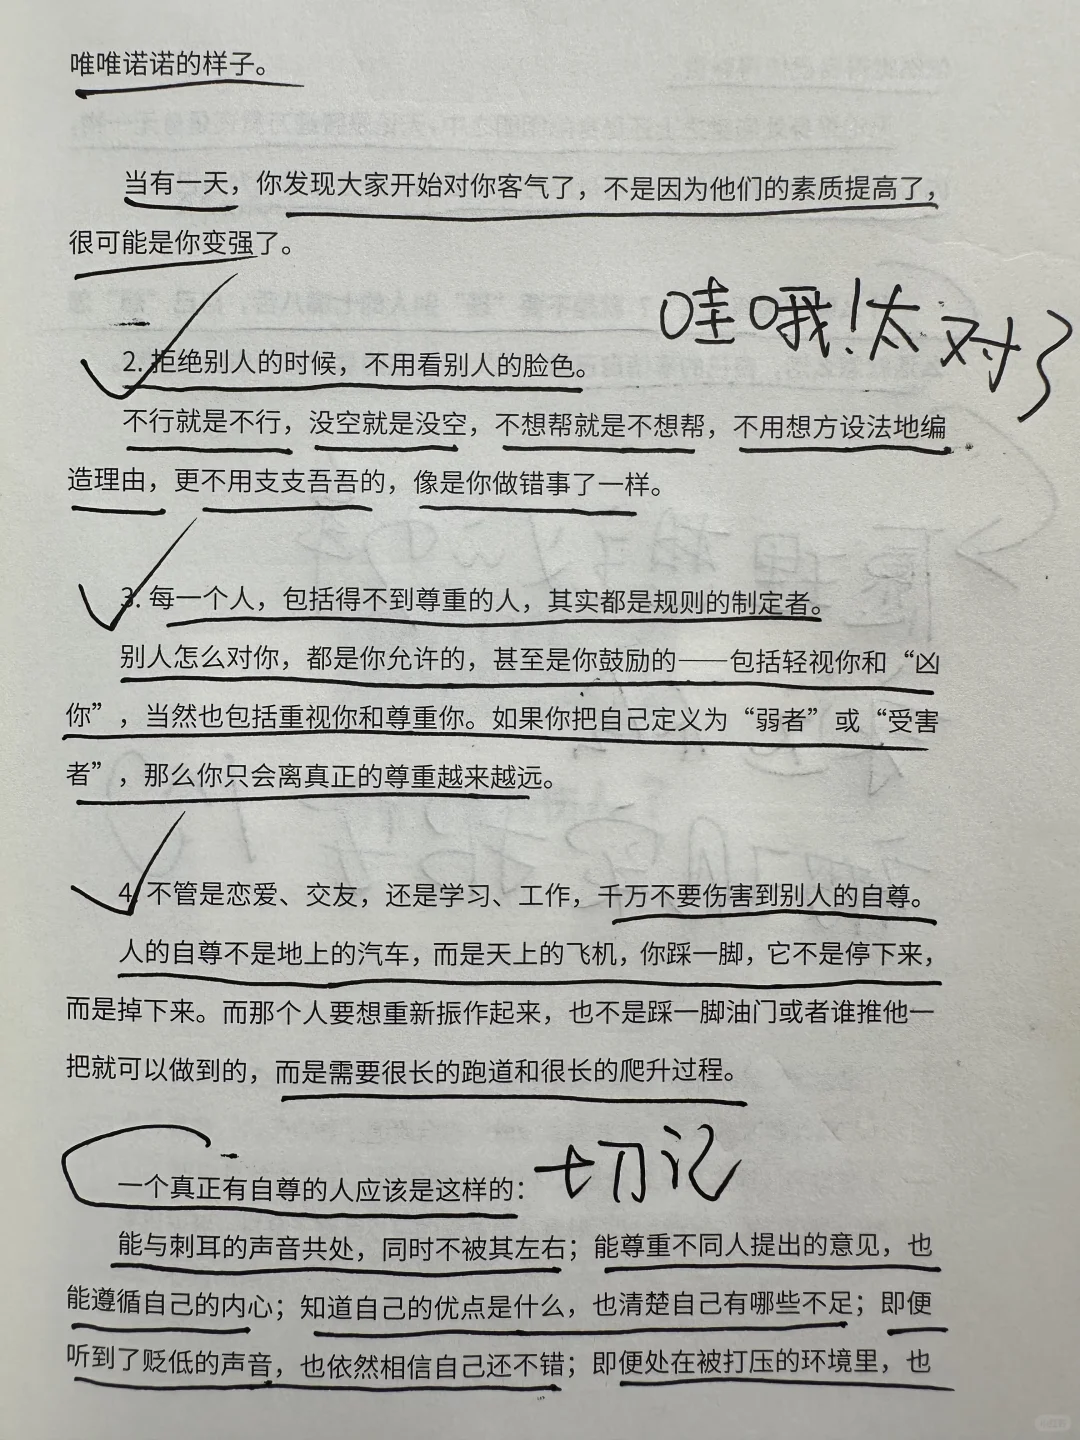 唯唯诺诺的样子。
当有一天，你发现大家开始对你客气了，不是因为他们的素质提高了，
很可能是你变强了。
哇哦！太对了
2. 拒绝别人的时候，不用看别人的脸色。
不行就是不行，没空就是没空，不想帮就是不想帮，不用想方设法地编
造理由，更不用支支吾吾的，像是你做错事了一样。
3. 每一个人，包括得不到尊重的人，其实都是规则的制定者。
别人怎么对你，都是你允许的，甚至是你鼓励的——包括轻视你和“凶
你”，当然也包括重视你和尊重你。如果你把自己定义为“弱者”或“受害
者”，那么你只会离真正的尊重越来越远。
4. 不管是恋爱、交友，还是学习、工作，千万不要伤害到别人的自尊。
人的自尊不是地上的汽车，而是天上的飞机，你踩一脚，它不是停下来，
而是掉下来。而那个人要想重新振作起来，也不是踩一脚油门或者谁推他一
把就可以做到的，而是需要很长的跑道和很长的爬升过程。
一个真正有自尊的人应该是这样的：
切记
能与刺耳的声音共处，同时不被其左右；能尊重不同人提出的意见，也
能遵循自己的内心；知道自己的优点是什么，也清楚自己有哪些不足；即便
听到了贬低的声音，也依然相信自己还不错；即便处在被打压的环境里，也